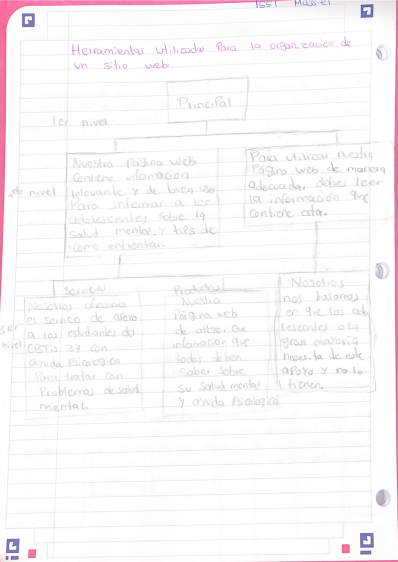 1551 Massiel
Herramientas utilizadas para la organización de
un sitio web.
Principal
1er nivel
Nuestra página web
Contiene información
relevante y de buen uso
Para informar a los
adolescentes sobre la
salud mental y tips de
como enfrentar.
Para utilizar nuestra
Página web de manera
adecuada, debes leer
la información que
contiene esta.
nivel
Servicios
Nosotros
el servicio de
a los estudiantes de
CBTis 37 con
ayuda Psicologica
Para tratar con
Problemas de salud
mental.
Productos
Nuestra
Página web
de
información que
todos deben
saber sobre
su salud mental
y ayuda Psicologica
Nosotros
nos basamos
en que los ado
lescentes a la
gran mayoria
necesita de este
apoyo y no lo
tienen.
nivel